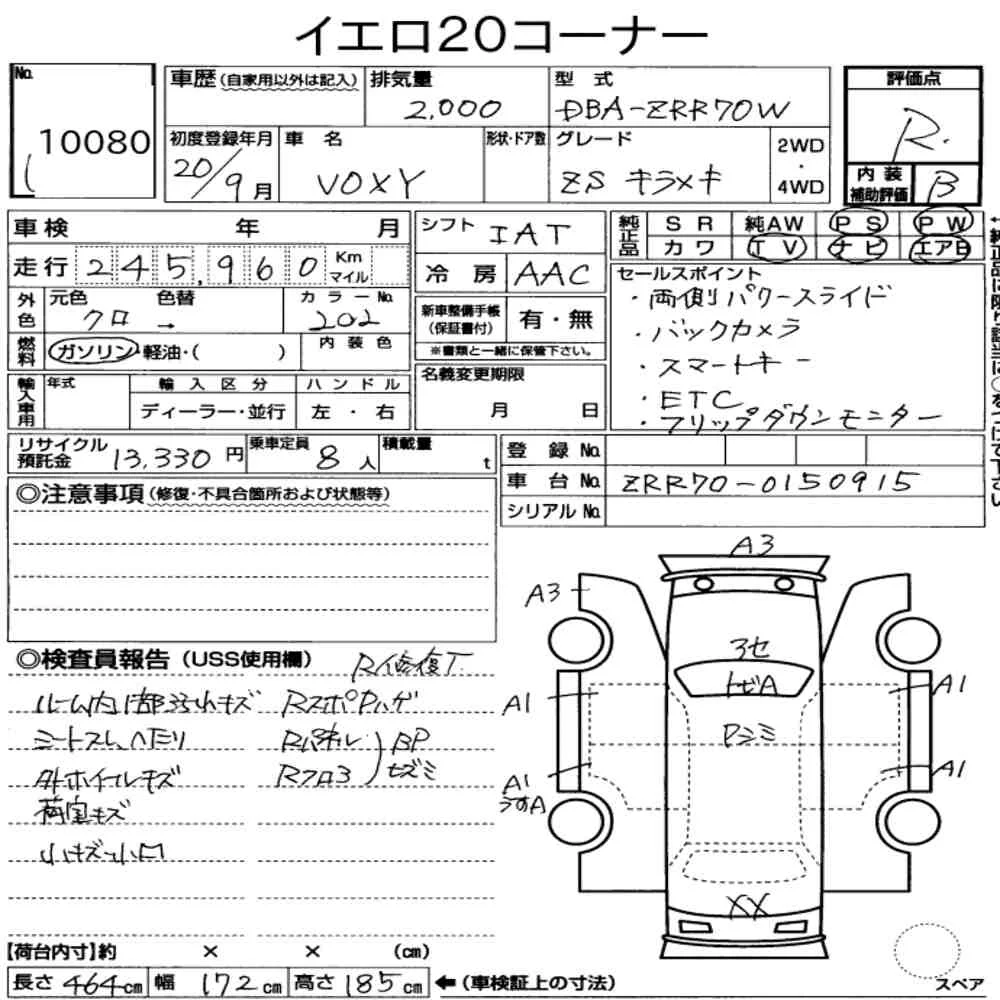 イエロ20コーナー
No.
10080
車歴(自家用以外は記入)
排気量
2,000
型式
DBA-ZRR70W
評価点
R.
初度登録年月
20/9月
車名
VOXY
形状・ドア数
グレード
ZS キラメキ
2WD
・
4WD
内装
補助評価
B
車検 年 月
走行 245,960 Km マイル
シフト IAT
冷房 AAC
純正品
SR 純AW PS PW
カワ TV ナビ エアB
セールスポイント
・両側パワースライド
・バックカメラ
・スマートキー
・ETC
・フリップダウンモニター
外色
元色 色替
クロ →
カラーNo.
202
燃料
ガソリン・軽油・( )
内装色
新車整備手帳
(保証書付)
有・無
※書類と一緒に保管下さい。
輸入車用
年式
輸入区分
ディーラー・並行
ハンドル
左・右
名義変更期限
月 日
リサイクル
預託金
13,330円
乗車定員
8人
積載量
t
登録No.
車台No.
ZRR70-0150915
シリアルNo.
◎注意事項(修復・不具合箇所および状態等)
◎検査員報告(USS使用欄)
外ホイールキズ
荷室キズ
A3
A3
A1
A1
A1
うすA
A1
トビA
XX
【荷台内寸】約 × × (cm)
長さ 464cm 幅 172cm 高さ 185cm ←(車検証上の寸法)
スペア